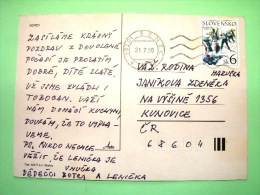 ZASÍLÁME KRÁSNÝ
POZDRAV Z DOVOLENÉ
POČASÍ JE PROZATÍM
DOBRÉ, DÍTĚ ZLATÉ.
UŽ JSME ZVLÁDLI I
TOBOGAN. VAŘÍ
NÁM DOMÁCÍ KUCHYNÍ,
DOUFÁM, ŽE TO VYPLA-
VEME.
PS. NIKDO NECHCE
VĚŘIT, ŽE LENIČKA JE
VNUČKA
DĚDEČEK A LENIČKA
SLOVENSKO
6
VÁŽ. RODINA
HARUŠKA
JANÍKOVA ZDEŇKA
NA VÝŠINĚ 1356
KUNOVICE
ČR
68604